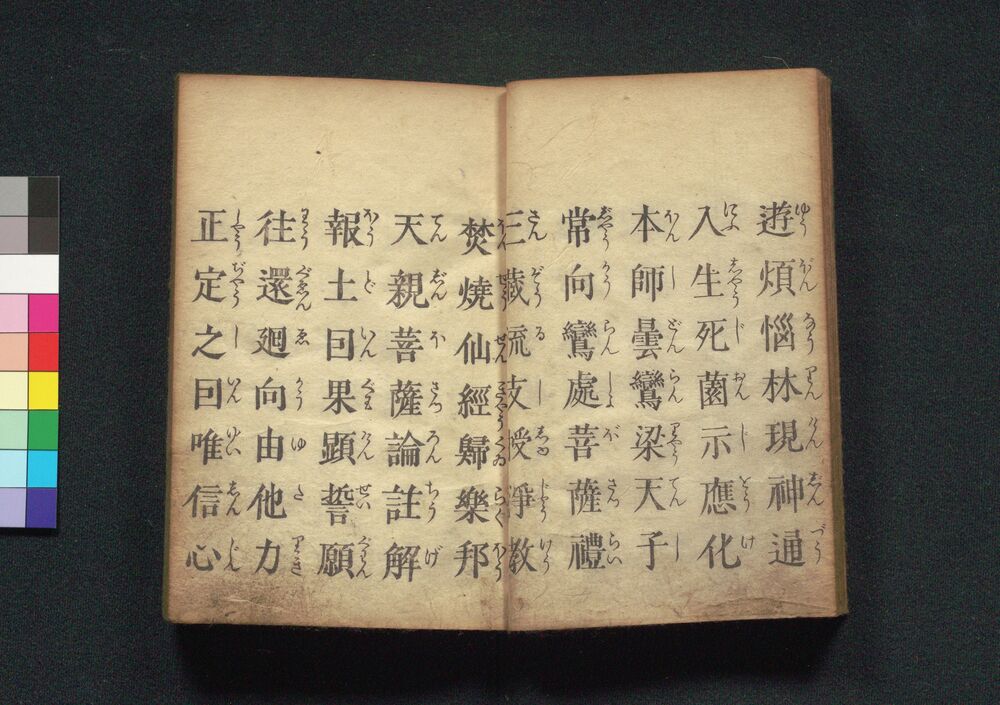 遊煩惱林現神通
入生死薗示應化
本師曇鸞梁天子
常向鸞處菩薩禮
三藏流支授淨教
焚燒仙經歸樂邦
天親菩薩論註解
報土因果顯誓願
往還廻向由他力
正定之因唯信心